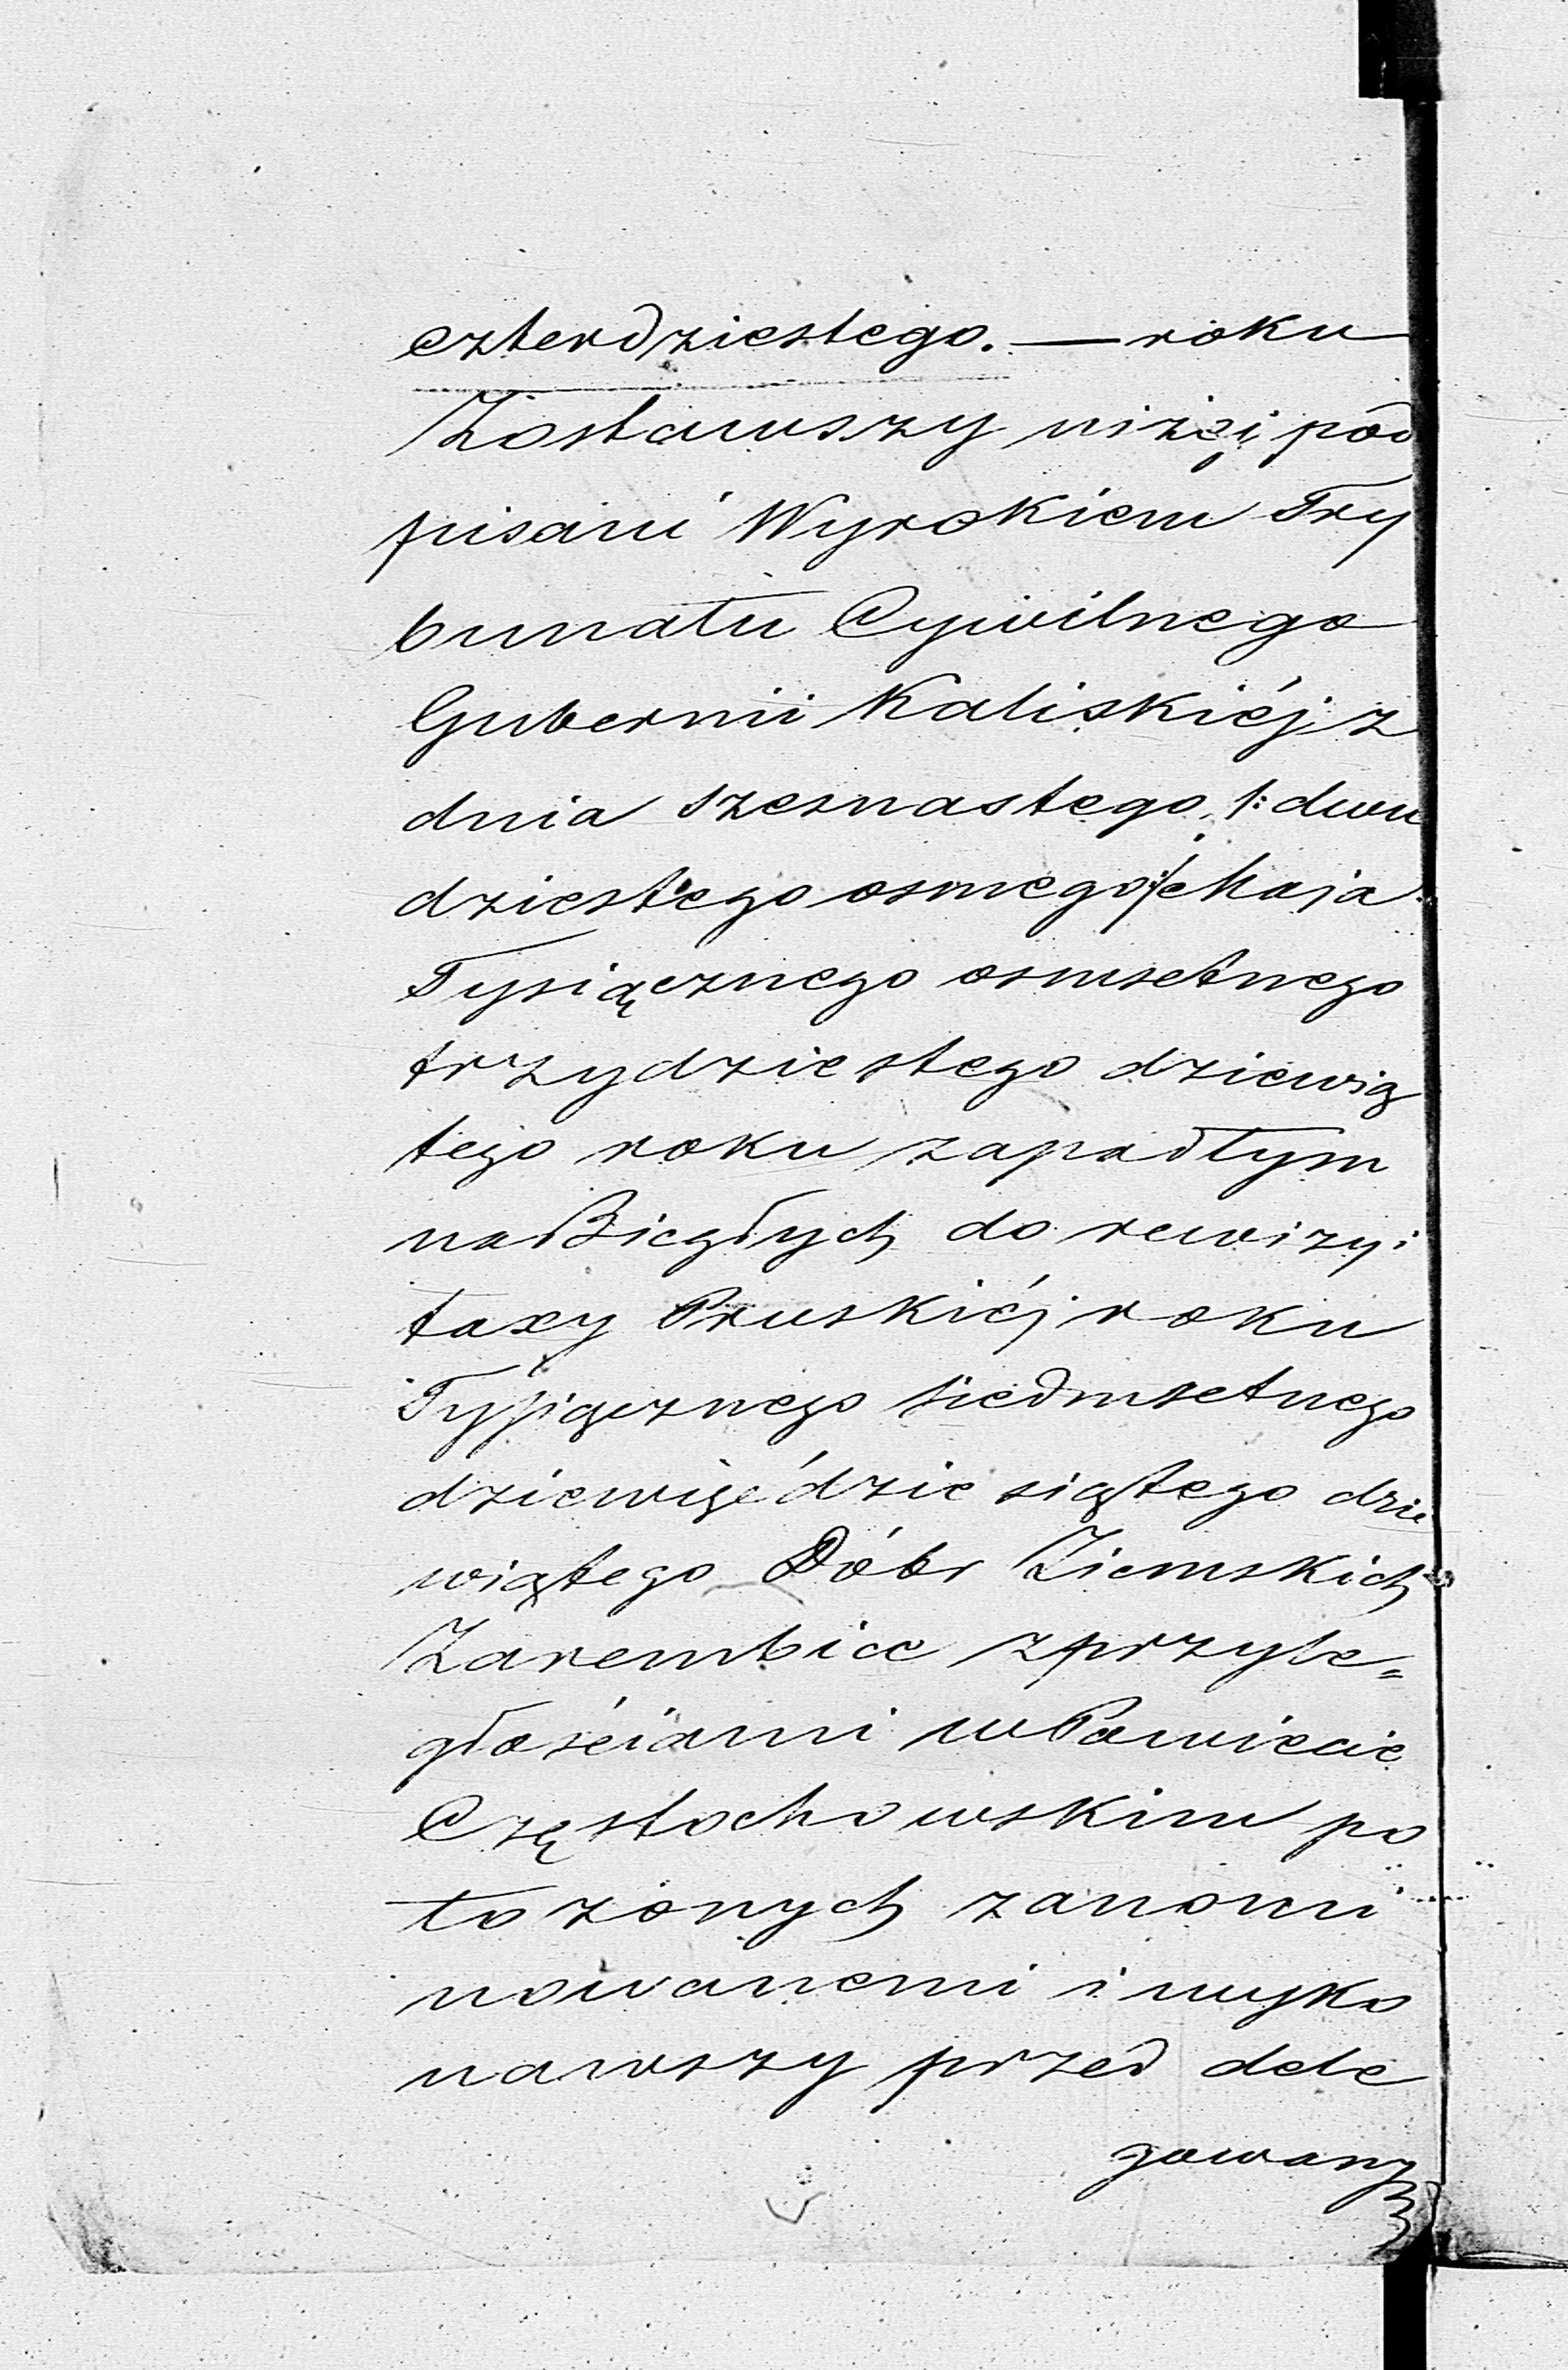 czterdziestego. — roku
Zostawszy niżej pod
pisani Wyrokiem Try
bunału Cywilnego
Gubernii Kaliskiéj z
dnia szesnastego /: dwu
dziestego osmego :/ Maja
Tysiącznego osmsetnego
trzydziestego dziewią
tego roku zapadłym
na Biegłych do rewizyi
taxy Pruskiéj roku
Tysiącznego siedmsetnego
dziewięćdziesiątego dzie
wiątego Dóbr Ziemskich
Zarembice z przyle=
głościami w Powiecie
Częstochowskim po
łożonych zanomi
nowanemi i wyko
nawszy przed dele
gowany